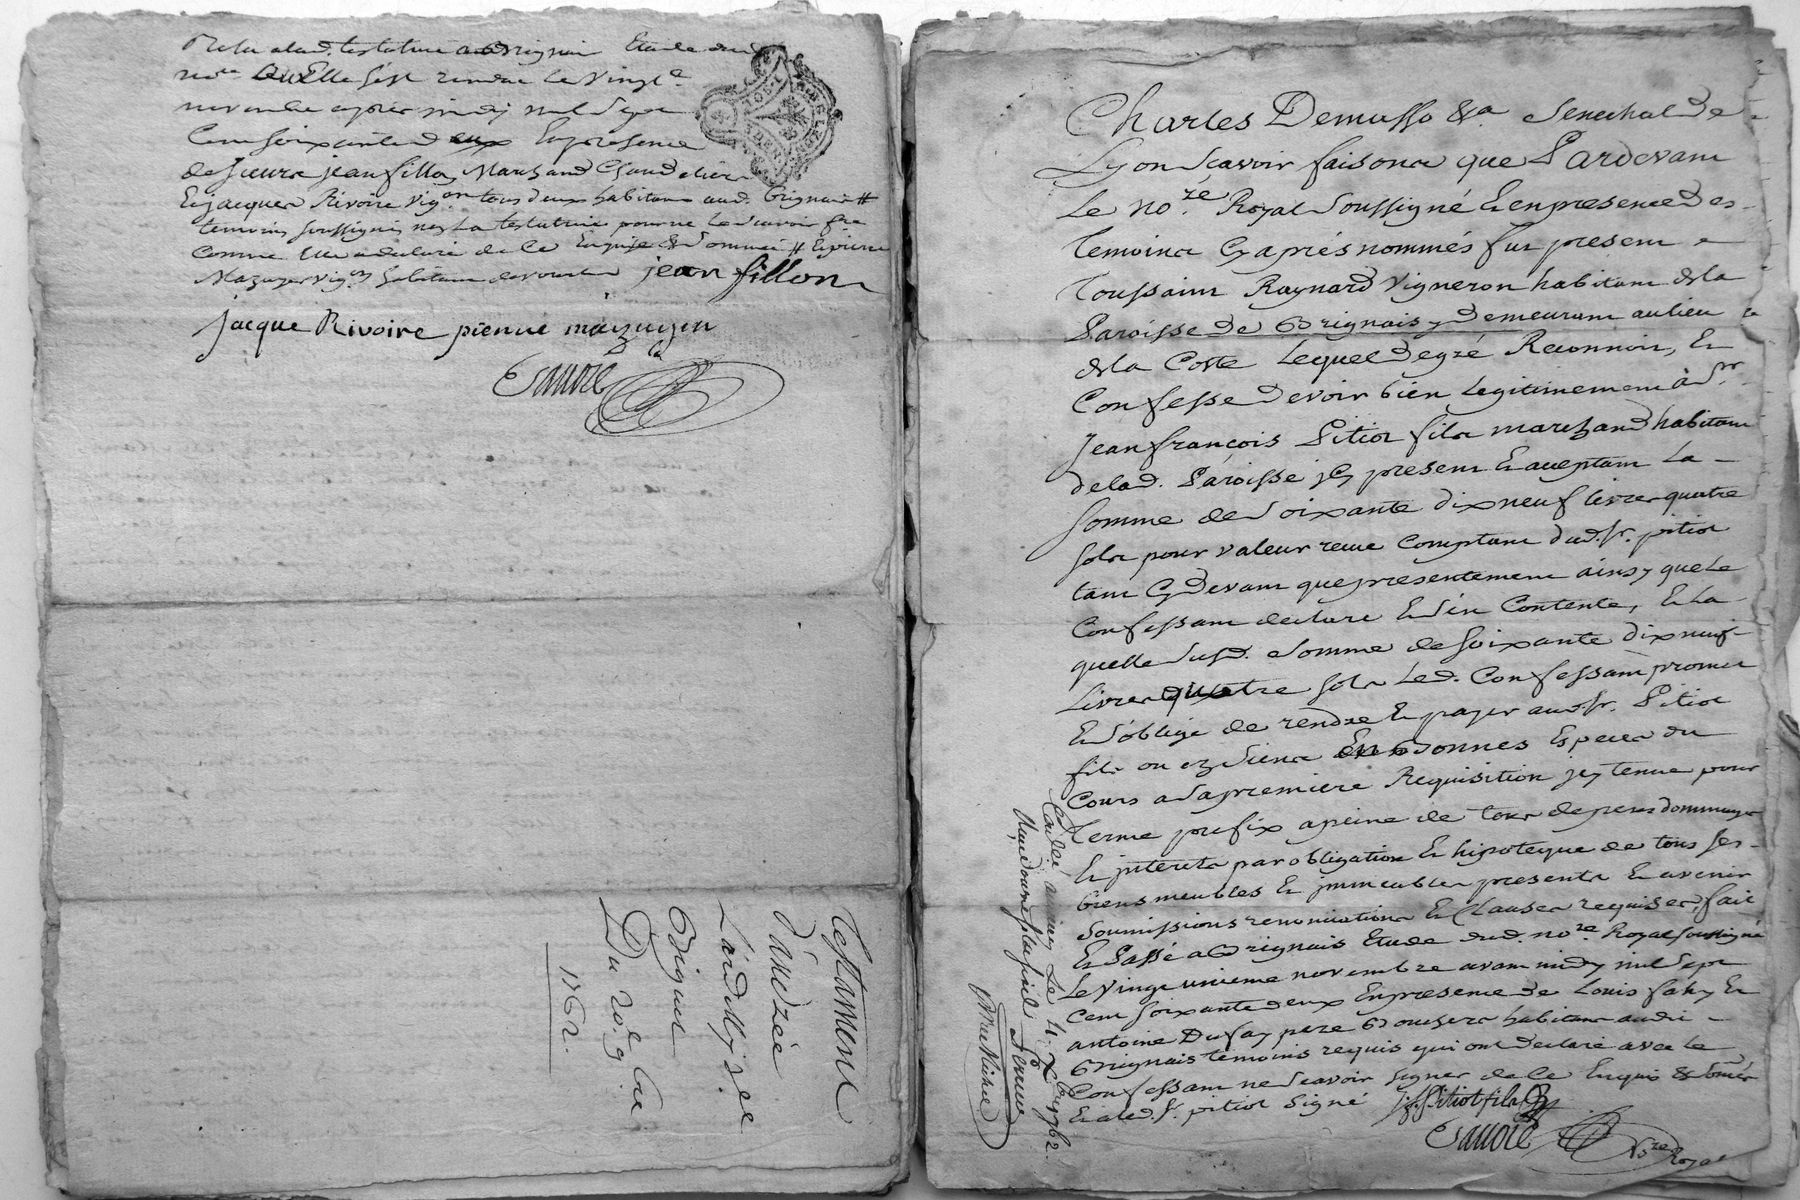 Relu a lad. testatrice a Brignais Etude dud.
no.re ou Elle s'est rendue le vingt e
novembre apres midy mil sept
Cent soixante deux En presence
de sieurs jean fillon Marchand Chandelier
Et jacques Rivoire vig.on tous deux habitans aud. Brignais #
temoins soussignés non La testatrice pour ne le scavoir f.re
comme Elle a declaré de Ce Enquise & sommée # Et pierre
Mazuyer vig.on habitant de vourles jean fillon
jacque Rivoire pierre mazuyer
Sauvré
Testament
d'andrée
L'ardelly ve
Brigun
Du 20.e 9.bre
1762.
Charles Demasso &a Senechal de
Lyon Scavoir faisons que Pardevant
Le no.re Royal soussigné Et en presence des
temoins Cy aprés nommés fut present
Toussaint Raynard Vigneron habitant de la
Paroisse de Brignais y demeurant au lieu
de la Coste Lequel de gré Reconnoit, Et
Confesse devoir bien Legitimement à Sr.
Jean françois Pitiot fils marchand habitant
de lad. Paroisse jcy present Et acceptant La
somme de soixante dix neuf livres quatre
sols pour valeur reçue Comptant dud. Sr. pitiot
tant Cydevant que presentement ainsy que Le
Confessant declare Et s'en Contente, Et La
quelle susd. somme de soixante dix neuf
Livres quatre sols Led. Confessant promet
Et s'oblige de rendre Et payer aud. Sr. Pitiot
fils ou es siens En bonnes Especes du
Cours a sa premiere Requisition jcy tenue pour
Terme prefix a peine de tous depens dommages
Et interets par obligation Et hipoteque de tous ses
biens meubles Et jmmeubles presents Et avenir
Soumissions renonciations Et Clauses requises, fait
Et Passé a Brignais Etude dud. no.re Royal soussigné
Le vingt unieme novembre avant midy mil sept
Cent soixante deux En presence de Louis faky Et
antoine Dufay pere Bouchers habitans audit
Brignais temoins requis qui ont declaré avec le
Confessant ne scavoir signer de Ce Enquis & sommés
Et a led. Sr. pitiot Signé J. f. Pitiot fils
Sauvré n.re Royal
Le 4. Xbre 1762.